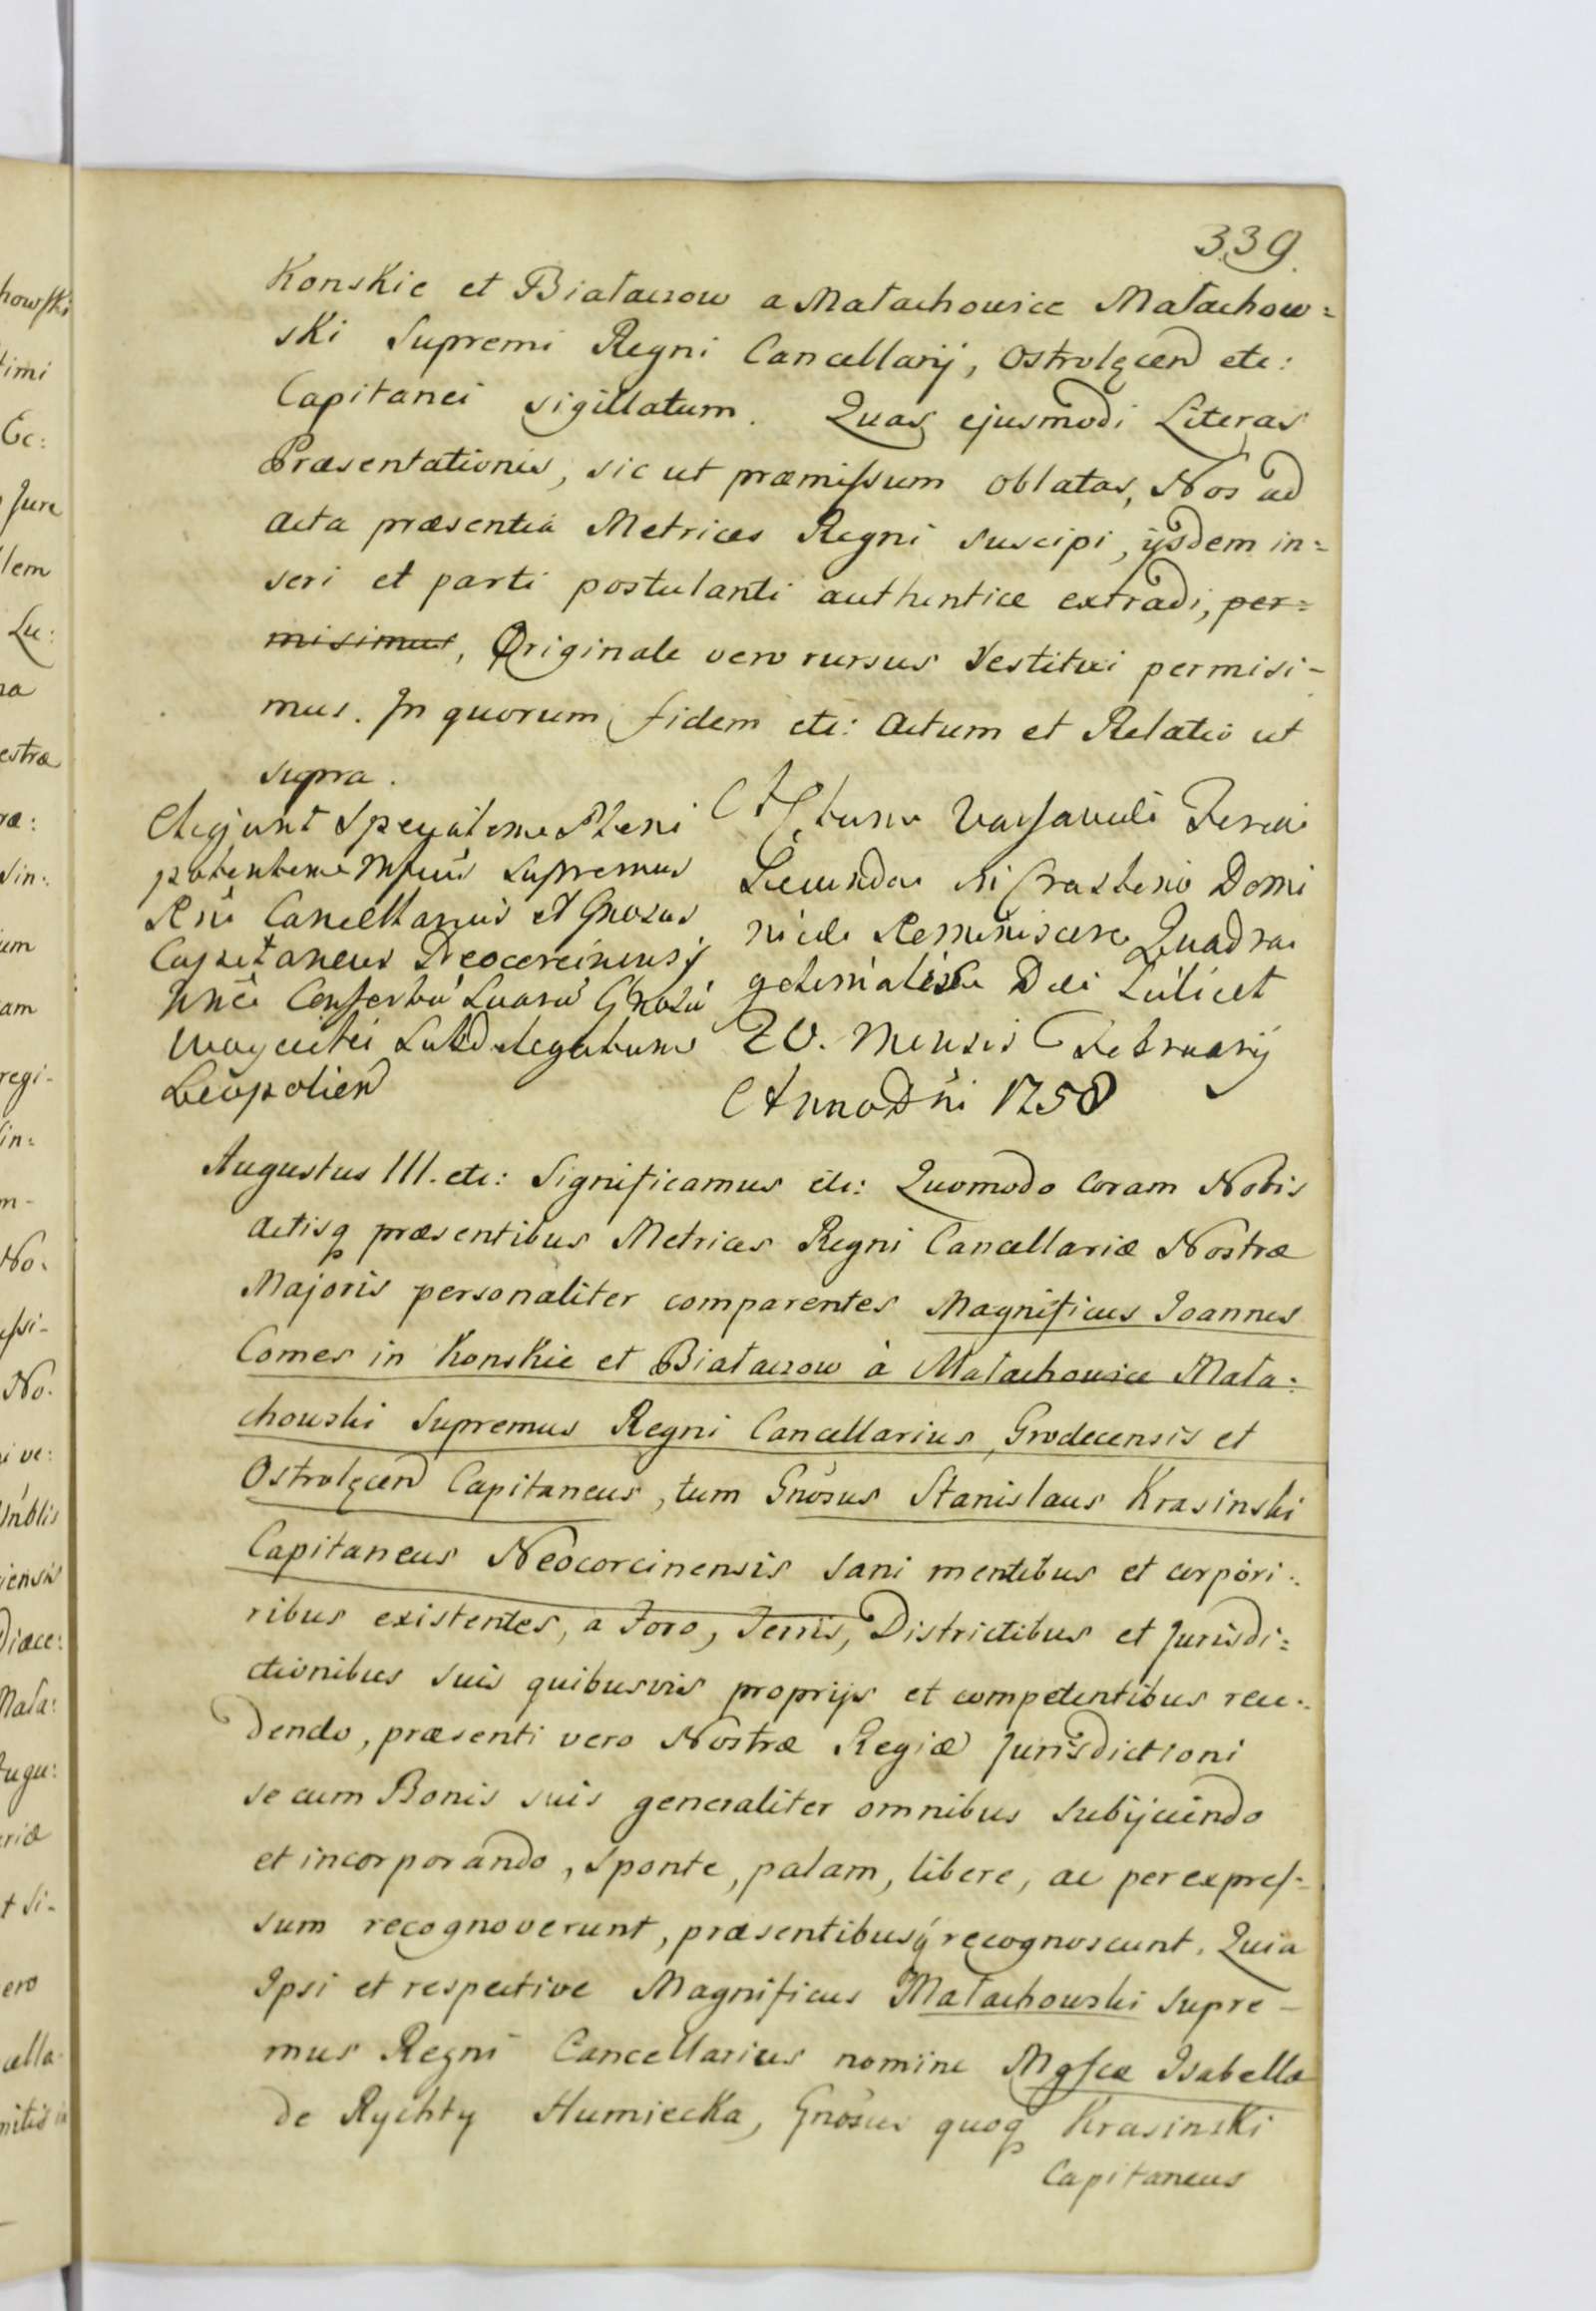 339.
Konskie et Białaczow a Małachowice Małachow=
ski Supremi Regni Cancellarij, Ostrolęcen etc:
Capitanei sigillatum. Quas ejusmodi Literas
Præsentationis, sic ut præmissum oblatas, Nos ad
acta præsentia Metrices Regni suscipi, ijsdem in=
seri et parti postulanti authentice extradi, per=
misimus, Originale vero rursus restitui permisi-
mus. In quorum fidem etc: Actum et Relatio ut
supra.
Pleni
potentem Supremus
Rni Cancellarius et Gnosus
Capitaneus Neocorcinensis
Subdelegatum
Leopolien
Actum Varsaviæ Feria
Secunda in Crastino Domi
nicæ Reminiscere Quadra
gesimalis Die scilicet
20. Mensis Februarij
Anno Dni 1758
Augustus III. etc: Significamus etc: Quomodo Coram Nobis
actisq præsentibus Metrices Regni Cancellariæ Nostræ
Majoris personaliter comparentes Magnificus Joannes
Comes in Konskie et Białaczow à Małachowice Mała:
chowski Supremus Regni Cancellarius, Grodecensis et
Ostrolęcen Capitaneus, tum Gnosus Stanislaus Krasinski
Capitaneus Neocorcinensis sani mentibus et corpori:
ribus existentes, a Foro, Terris, Districtibus et Jurisdi=
ctionibus suis quibusvis proprijs et competentibus rece:
dendo, præsenti vero Nostræ Regiæ Jurisdictioni
se cum Bonis suis generaliter omnibus subijciendo
et incorporando, sponte, palam, libere, ac per expres:
sum recognoverunt, præsentibusq recognoscunt. Quia
Ipsi et respective Magnificus Małachowski Supre-
mus Regni Cancellarius nomine Mgfcæ Isabellæ
de Rychty Humiecka, Gnosus quoq Krasinski
Capitaneus